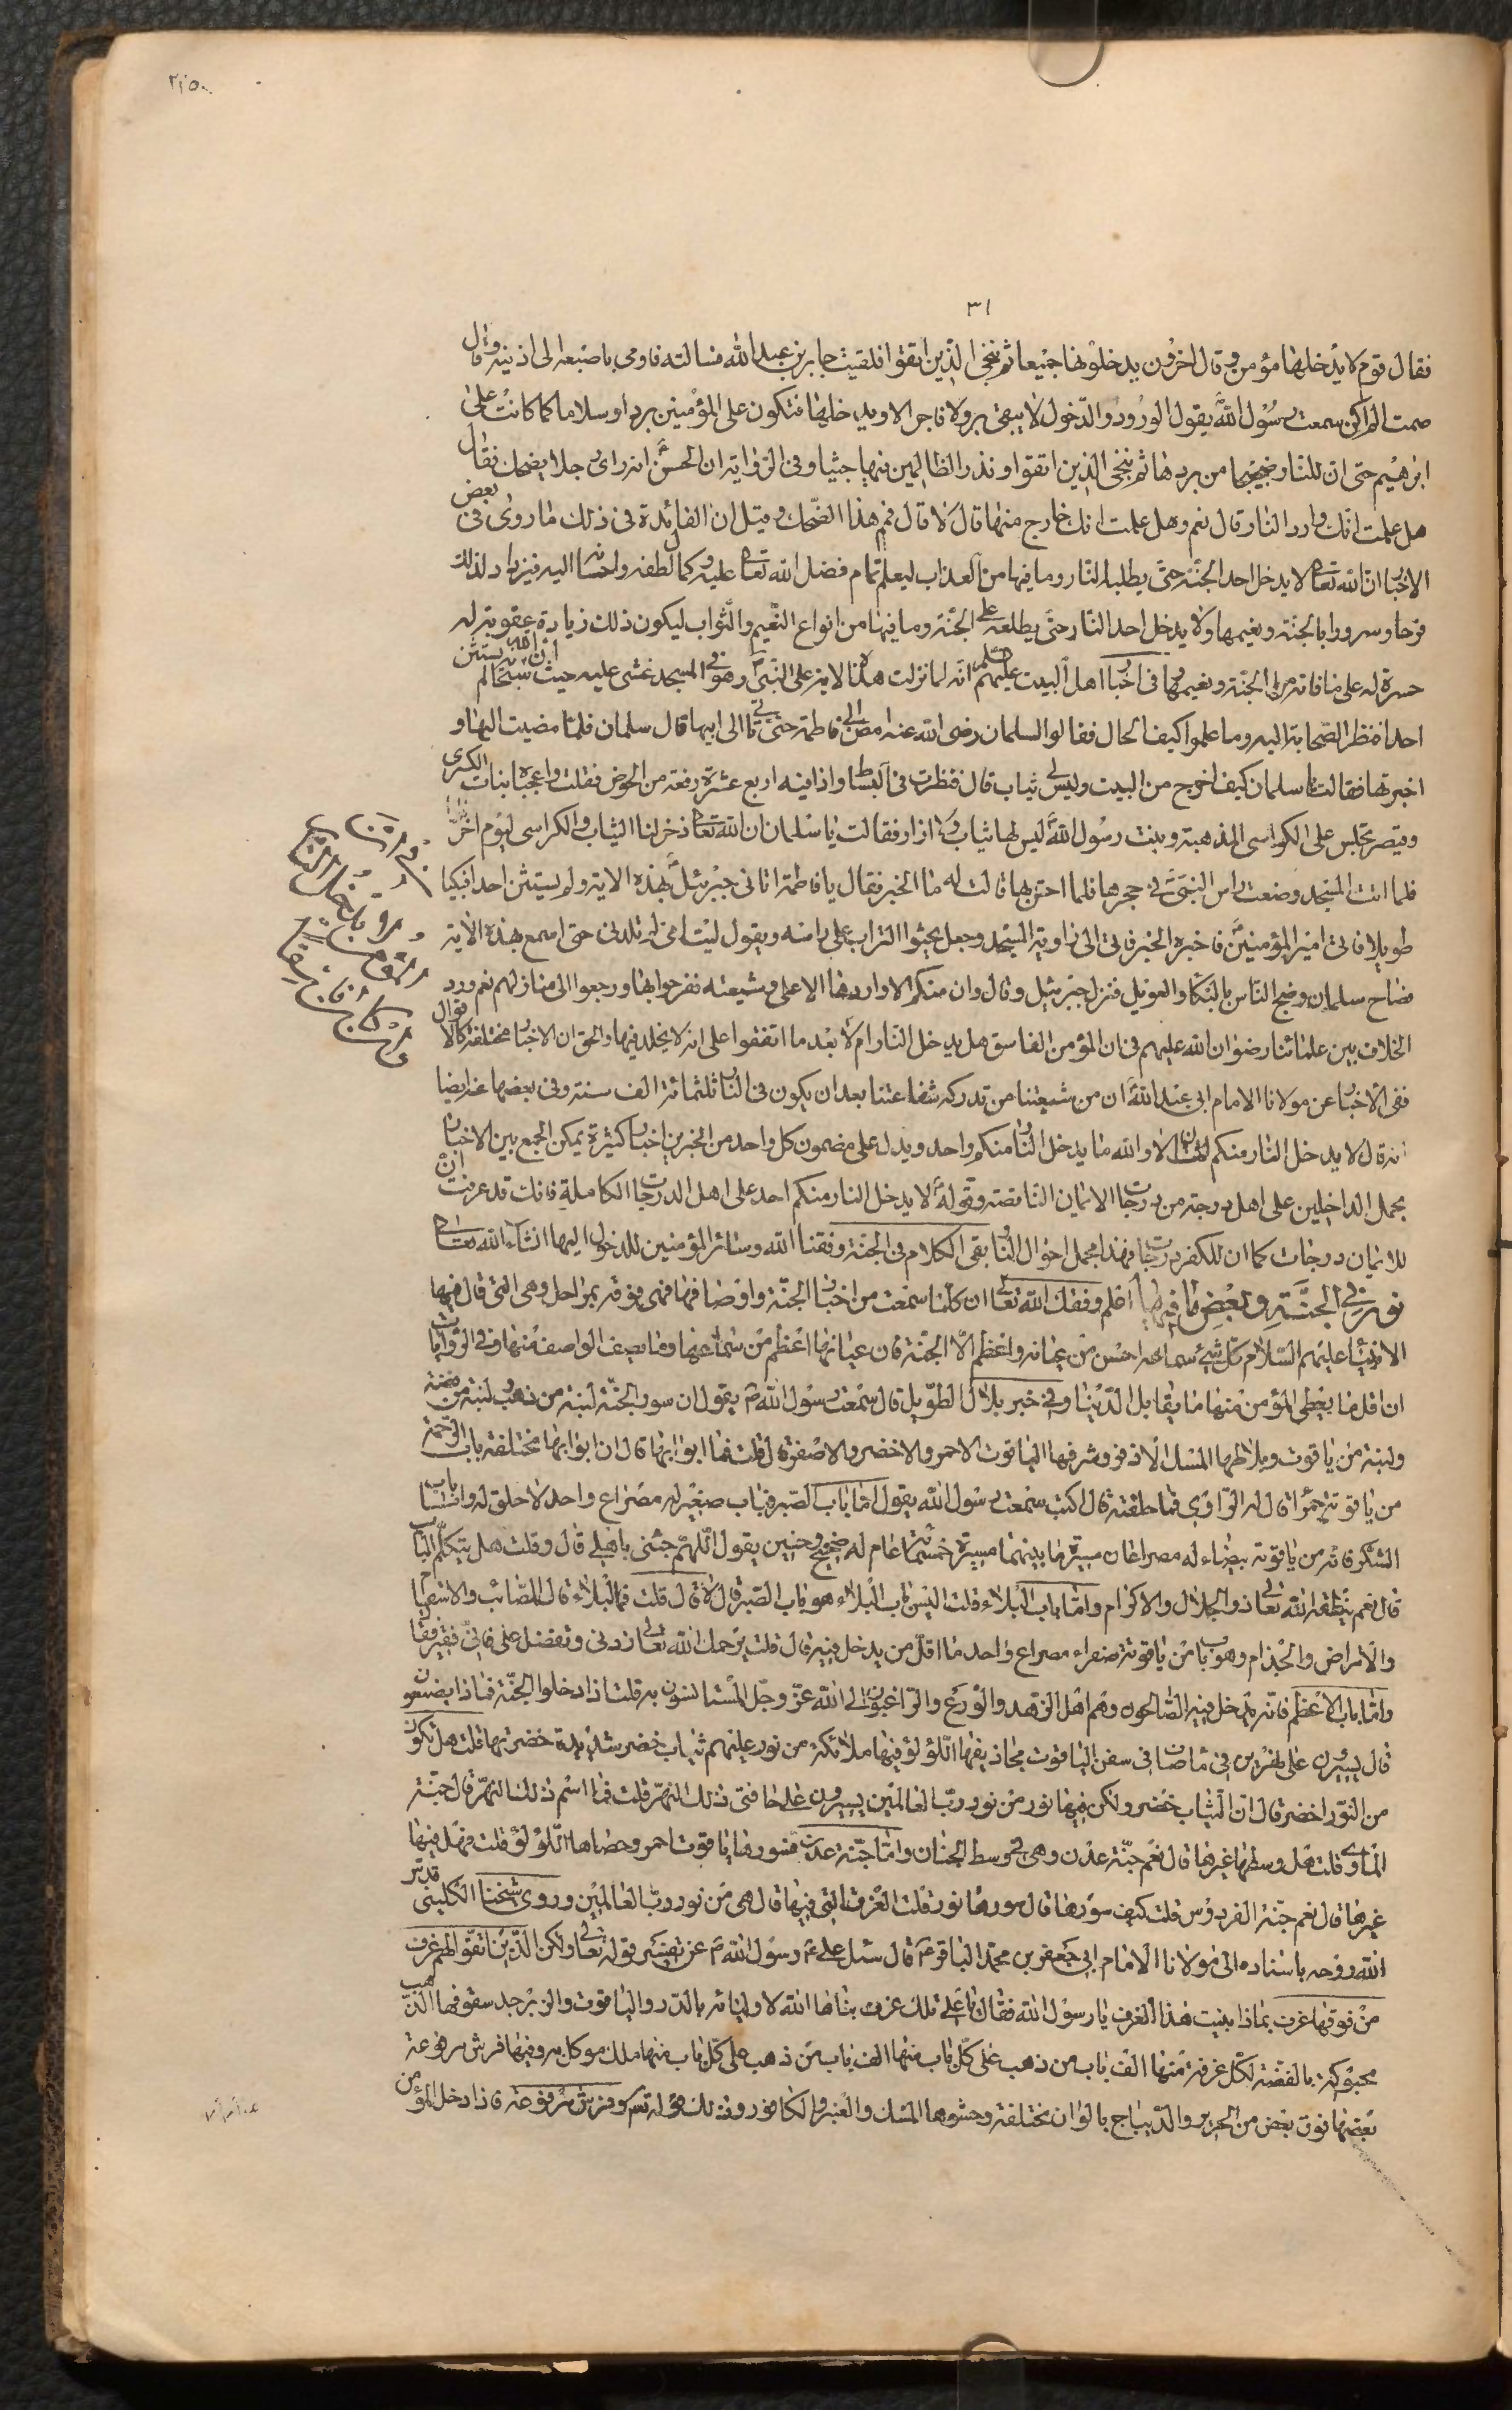 ٣١
فقال قوم لا يدخلها مؤمن وقال اخرون يدخلونها جميعا ثم ننجى الذين اتقوا فلقيت جابر بن عبد الله فسالته فاومى باصبعه الى اذنيه وقال
صمتا ان لم اكن سمعت رسول الله يقول الورود الدخول لا يبقى بر ولا فاجر الا ويدخلها فتكون على المؤمنين بردا وسلاما كما كانت على
ابرهيم حتى ان للنار ضجيجا من بردها ثم ننجى الذين اتقوا ونذر الظالمين فيها جثيا وفى الرواية ان الحسن انه راى رجلا يضحك فقال
هل علمت انك وارد النار قال نعم وهل علمت انك خارج منها قال لا قال فيم هذا الضحك وقيل ان الفائدة فى ذلك ما روى فى بعض
الاخبار ان الله تعالى لا يدخل احد الجنة حتى يطلعه النار وما فيها من العذاب ليعلم تمام فضل الله تعالى عليه وكمال لطفه واحسانه اليه فيزداد لذلك
فرحا وسرورا بالجنة ونعيمها ولا يدخل احد النار حتى يطلعه على الجنة وما فيها من انواع النعيم والثواب ليكون ذلك زيادة عقوبة له
حسرة له على ما فاته من الجنة ونعيمها وفى اخبار اهل البيت عليهم السلم انه لما نزلت هذه الاية على النبى وهو فى المسجد غشى عليه حيث ان الله سبحانه لم يستثن
احدا فنظر الصحابة اليه وما علموا كيف الحال فقالوا السلمان رضى الله عنه امض الى فاطمة حتى تاتى الى ابيها قال سلمان فلما مضيت اليها و
اخبرتها فقالت يا سلمان كيف اخرج من البيت وليس لى ثياب قال فنظرت فى البساط واذا فيه اربع عشرة رقعة من الخوص فقلت واعجبا بنات الكسرى
وقيصر تجلس على الكراسى المذهبة وبنت رسول الله ليس لها ثياب ولا ازار فقالت يا سلمان ان الله تعالى ذخر لنا الثياب والكراسى ليوم اخر
فلما اتت المسجد وضعت راس النبى فى حجرها فلما احس بها قالت له ما الخبر فقال يا فاطمة اتانى جبرئيل بهذه الاية ولم يستثن احدا فبكيا
طويلا فاتى امير المؤمنين فاخبره الخبر فاتى الى زاوية المسجد وجعل يحثوا التراب على راسه ويقول ليت امى لم تلدنى حتى اسمع بهذه الاية
فصاح سلمان وضج الناس بالبكاء والعويل فنزل جبرئيل وقال وان منكم الا واردها الا على وشيعته ففرحوا بها ورجعوا الى منازلهم نعم ورد
الخلاف بين علمائنا رضوان الله عليهم فى ان المؤمن الفاسق هل يدخل النار ام لا بعد ما اتفقوا على انه لا يخلد فيها والحق ان الاخبار مختلفة كالاقوال
ففى الاخبار عن مولانا الامام ابى عبد الله ان من شيعتنا من تدركه شفاعتنا بعد ان يكون فى النار ثلثمائة الف سنة وفى بعضها عنه ايضا
انه قال لا يدخل النار منكم اثنان لا والله ما يدخل النار منكم واحد ويدل على مضمون كل واحد من الخبرين اخبار كثيرة يمكن الجمع بين الاخبار
بحمل الداخلين على اهل درجة من درجات الايمان الناقصة وقوله لا يدخل النار منكم احد على اهل الدرجات الكاملة فانك قد عرفت ان
للايمان درجات كما ان للكفر درجات فهذا مجمل احوال النار بقى الكلام فى الجنة وفقنا الله وسائر المؤمنين للدخول اليها انشاء الله تعالى
نور فى الجنة وبعض ما فيها اعلم وفقك الله تعالى ان كلما سمعت من اخبار الجنة واوصافها فهى فوقه بمراحل وهى التى قال فيها
الانبياء عليهم السلام كل شىء سماعه احسن من عيانه واعظم الا الجنة فان عيانها اعظم من سماعها وما يصف الواصف منها وفى الروايات
ان اقل ما يعطى المؤمن منها ما يقابل الدنيا وفى خبر بلال الطويل قال سمعت رسول الله ص يقول ان سور الجنة لبنة من ذهب ولبنة من فضة
ولبنة من ياقوت وبلاطها المسك الاذفر وشرفها الياقوت الاحمر والاخضر والاصفر قال قلت فما ابوابها قال ان ابوابها مختلفة باب الرحمة
من ياقوتة حمراء قال له الراوى فما حلقته قال اكتب سمعت رسول الله يقول اما باب الصبر فباب صغير له مصراع واحد لا حلق له واما باب
الشكر فانه من ياقوتة بيضاء له مصراعان مسيرة ما بينهما مسيرة خمسمائة عام له ضجيج وحنين يقول اللهم جئنى باهلى قال وقلت هل يتكلم الباب
قال نعم ينطقه الله تعالى ذو الجلال والاكرام واما باب البلاء قلت اليس باب البلاء هو باب الصبر قال لا قال قلت فما البلاء قال المصائب والاسقام
والامراض والجذام وهو باب من ياقوتة صفراء مصراع واحد ما اقل من يدخل فيه قال قلت يرحمك الله تعالى زدنى وتفضل على فانى فقير فقال
واما باب الاعظم فانه يدخل فيه الصالحون وهم اهل الزهد والورع والراغبون الى الله عز وجل المستانسون به قلت اذا دخلوا الجنة فماذا يصنعون
قال يسيرون على نهرين فى ماء صاف فى سفن الياقوت مجاذيفها اللؤلؤ فيها ملائكة من نور عليهم ثياب خضر شديدة خضرتها قلت هل تكون
من النور اخضر قال ان الثياب خضر ولكن فيها نور من نور رب العالمين يسيرون على حافتى ذلك النهر قلت فما اسم ذلك النهر قال جنة
الماوى قلت هل وسطها غيرها قال نعم جنة عدن وهى فى وسط الجنان واما جنة عدن فسورها ياقوت احمر وحصاها اللؤلؤ قلت فهل فيها
غيرها قال نعم جنة الفردوس قلت كيف سورها قال سورها نور قلت الغرف التى فيها قال هى من نور رب العالمين وروى شيخنا الكلينى قدس
الله روحه باسناده الى مولانا الامام ابى جعفر بن محمد الباقر ع قال سئل على ع رسول الله ص عن تفسير قوله تعالى ولكن الذين اتقوا لهم غرف
من فوقها غرف بماذا بنيت هذه الغرف يا رسول الله فقال يا على تلك غرف بناها الله لاوليائه بالدر والياقوت والزبرجد سقوفها الذهب
محبوكة بالفضة لكل غرفة منها الف باب من ذهب على كل باب منها الف باب من ذهب على كل باب منها ملك موكل به وفيها فرش مرفوعة
بعضها فوق بعض من الحرير والديباج بالوان مختلفة وحشوها المسك والعنبر والكافور وذلك قوله تعالى وفرش مرفوعة فاذا دخل المؤمن